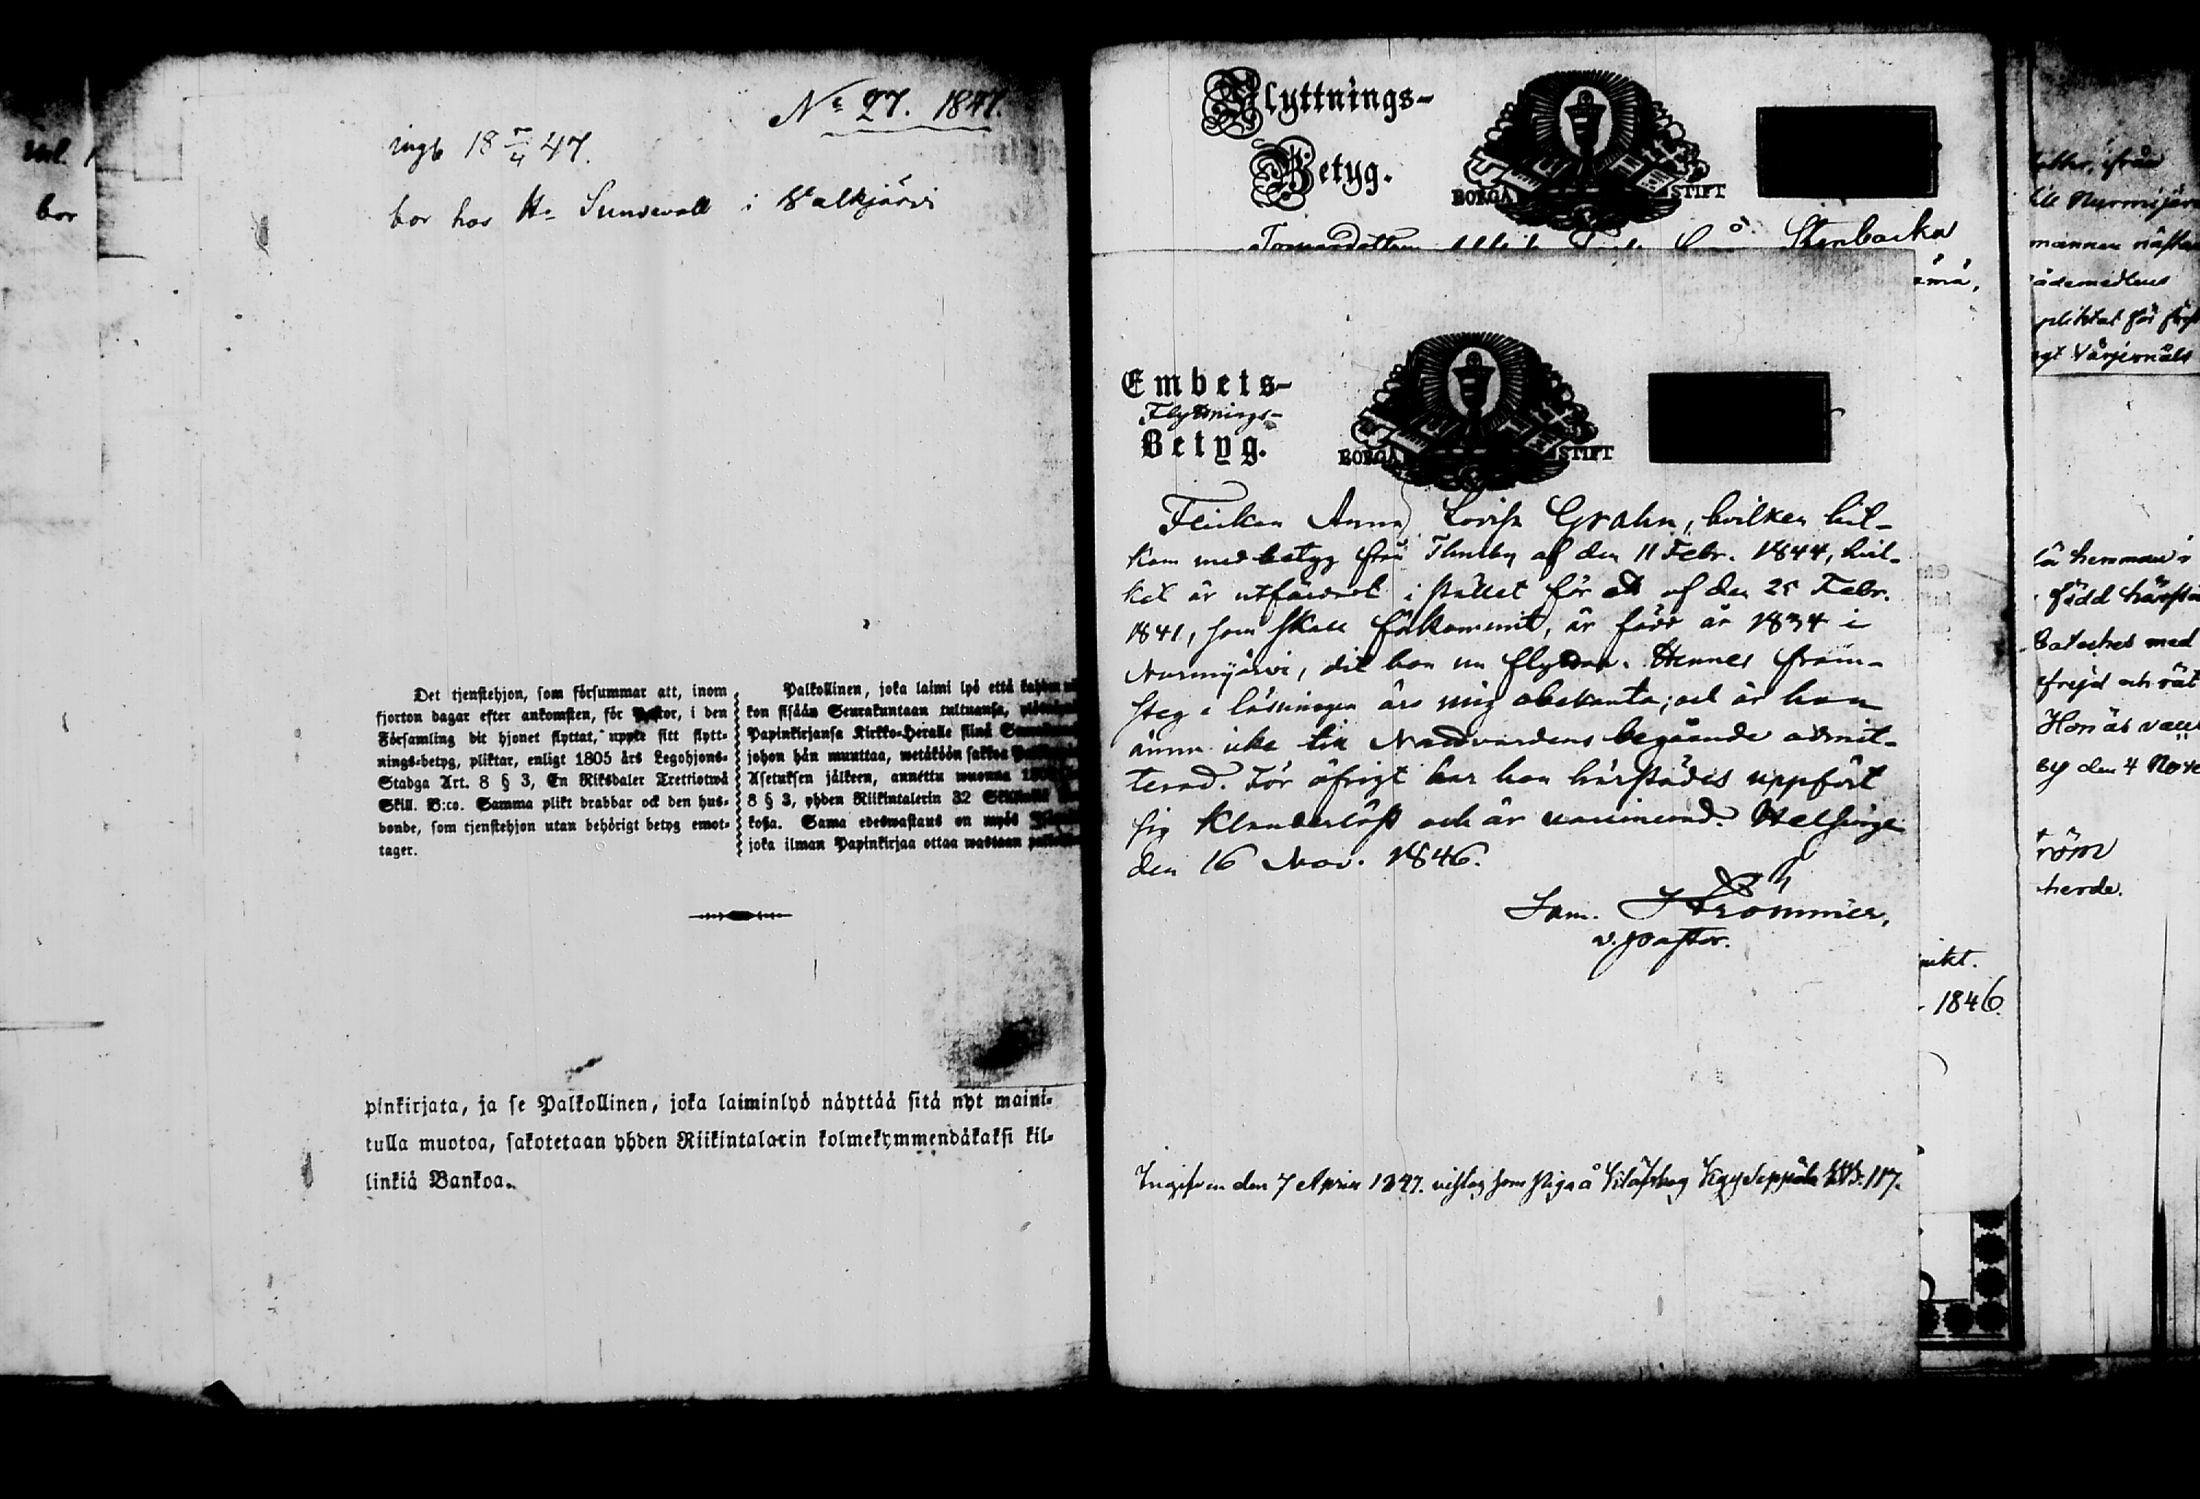 bor
N: 27. 1847.
ingb 18 7/4 47.
bor hos Hr Sundwall i Valkjärvi
Det tjenstehjon, som försummar att, inom
fjorton dagar efter ankomsten, för Pastor, i den
Församling dit hjonet flyttat, uppte sitt flytt-
nings-betyg, pliktar, enligt 1805 års Legohjons-
Stadga Art. 8 § 3, En Riksdaler Trettiotwå
Skill. B:co. Samma plikt drabbar ock den hus-
bonde, som tjenstehjon utan behörigt betyg emot-
tager.
Palkollinen, joka laimi lyö että
kon sisään Seurakuntaan tultuansa,
Papinkirjansa Kirkko-Heralle siinä
johon hän muuttaa, wetäköön sakkoa
Asetuksen jälkeen, annettu wuonna
8 § 3, yhden Riikintalerin 32
kosta. Sama edeswastaus on myös
joka ilman Papinkirjaa ottaa wastaan
pinkirjata, ja se Palkollinen, joka laiminlyö näyttää sitä nyt maini-
tulla muotoa, sakotetaan yhden Riikintalarin kolmekymmendäkaksi kil-
linkiä Bankoa.
Flyttnings-
Betyg.
BORGÅ STIFT
Stenbacka
Embets-
Flyttnings-
Betyg.
BORGÅ STIFT
Flickan Anna Lovisa Grahn, hvilken hit-
kom med betyg från Thusby af den 11 Febr. 1844, hvil-
ket är utfärdadt i stället för ett af den 25 Febr.
1841, som skall förkommit, är född år 1834 i
Nurmijärvi, dit hon nu flyttar. Hennes fram-
steg i läsningen äro mig obekanta; ock är hon
ännu icke till Nattvardens begående admit-
terad. För öfrigt har hon härstädes uppfört
sig klanderlöst och är vaccinerad. Helsinge
den 16 Nov. 1846.
Sam. Strömmer,
v. pastor.
den 7 April 1847. som piga å Seppälä 117.
1846.
ifrån
till Nurmijärvi
mannen nästan
född härstä
med
frejd och
Hon är
den 4 Nov
röm
herde.